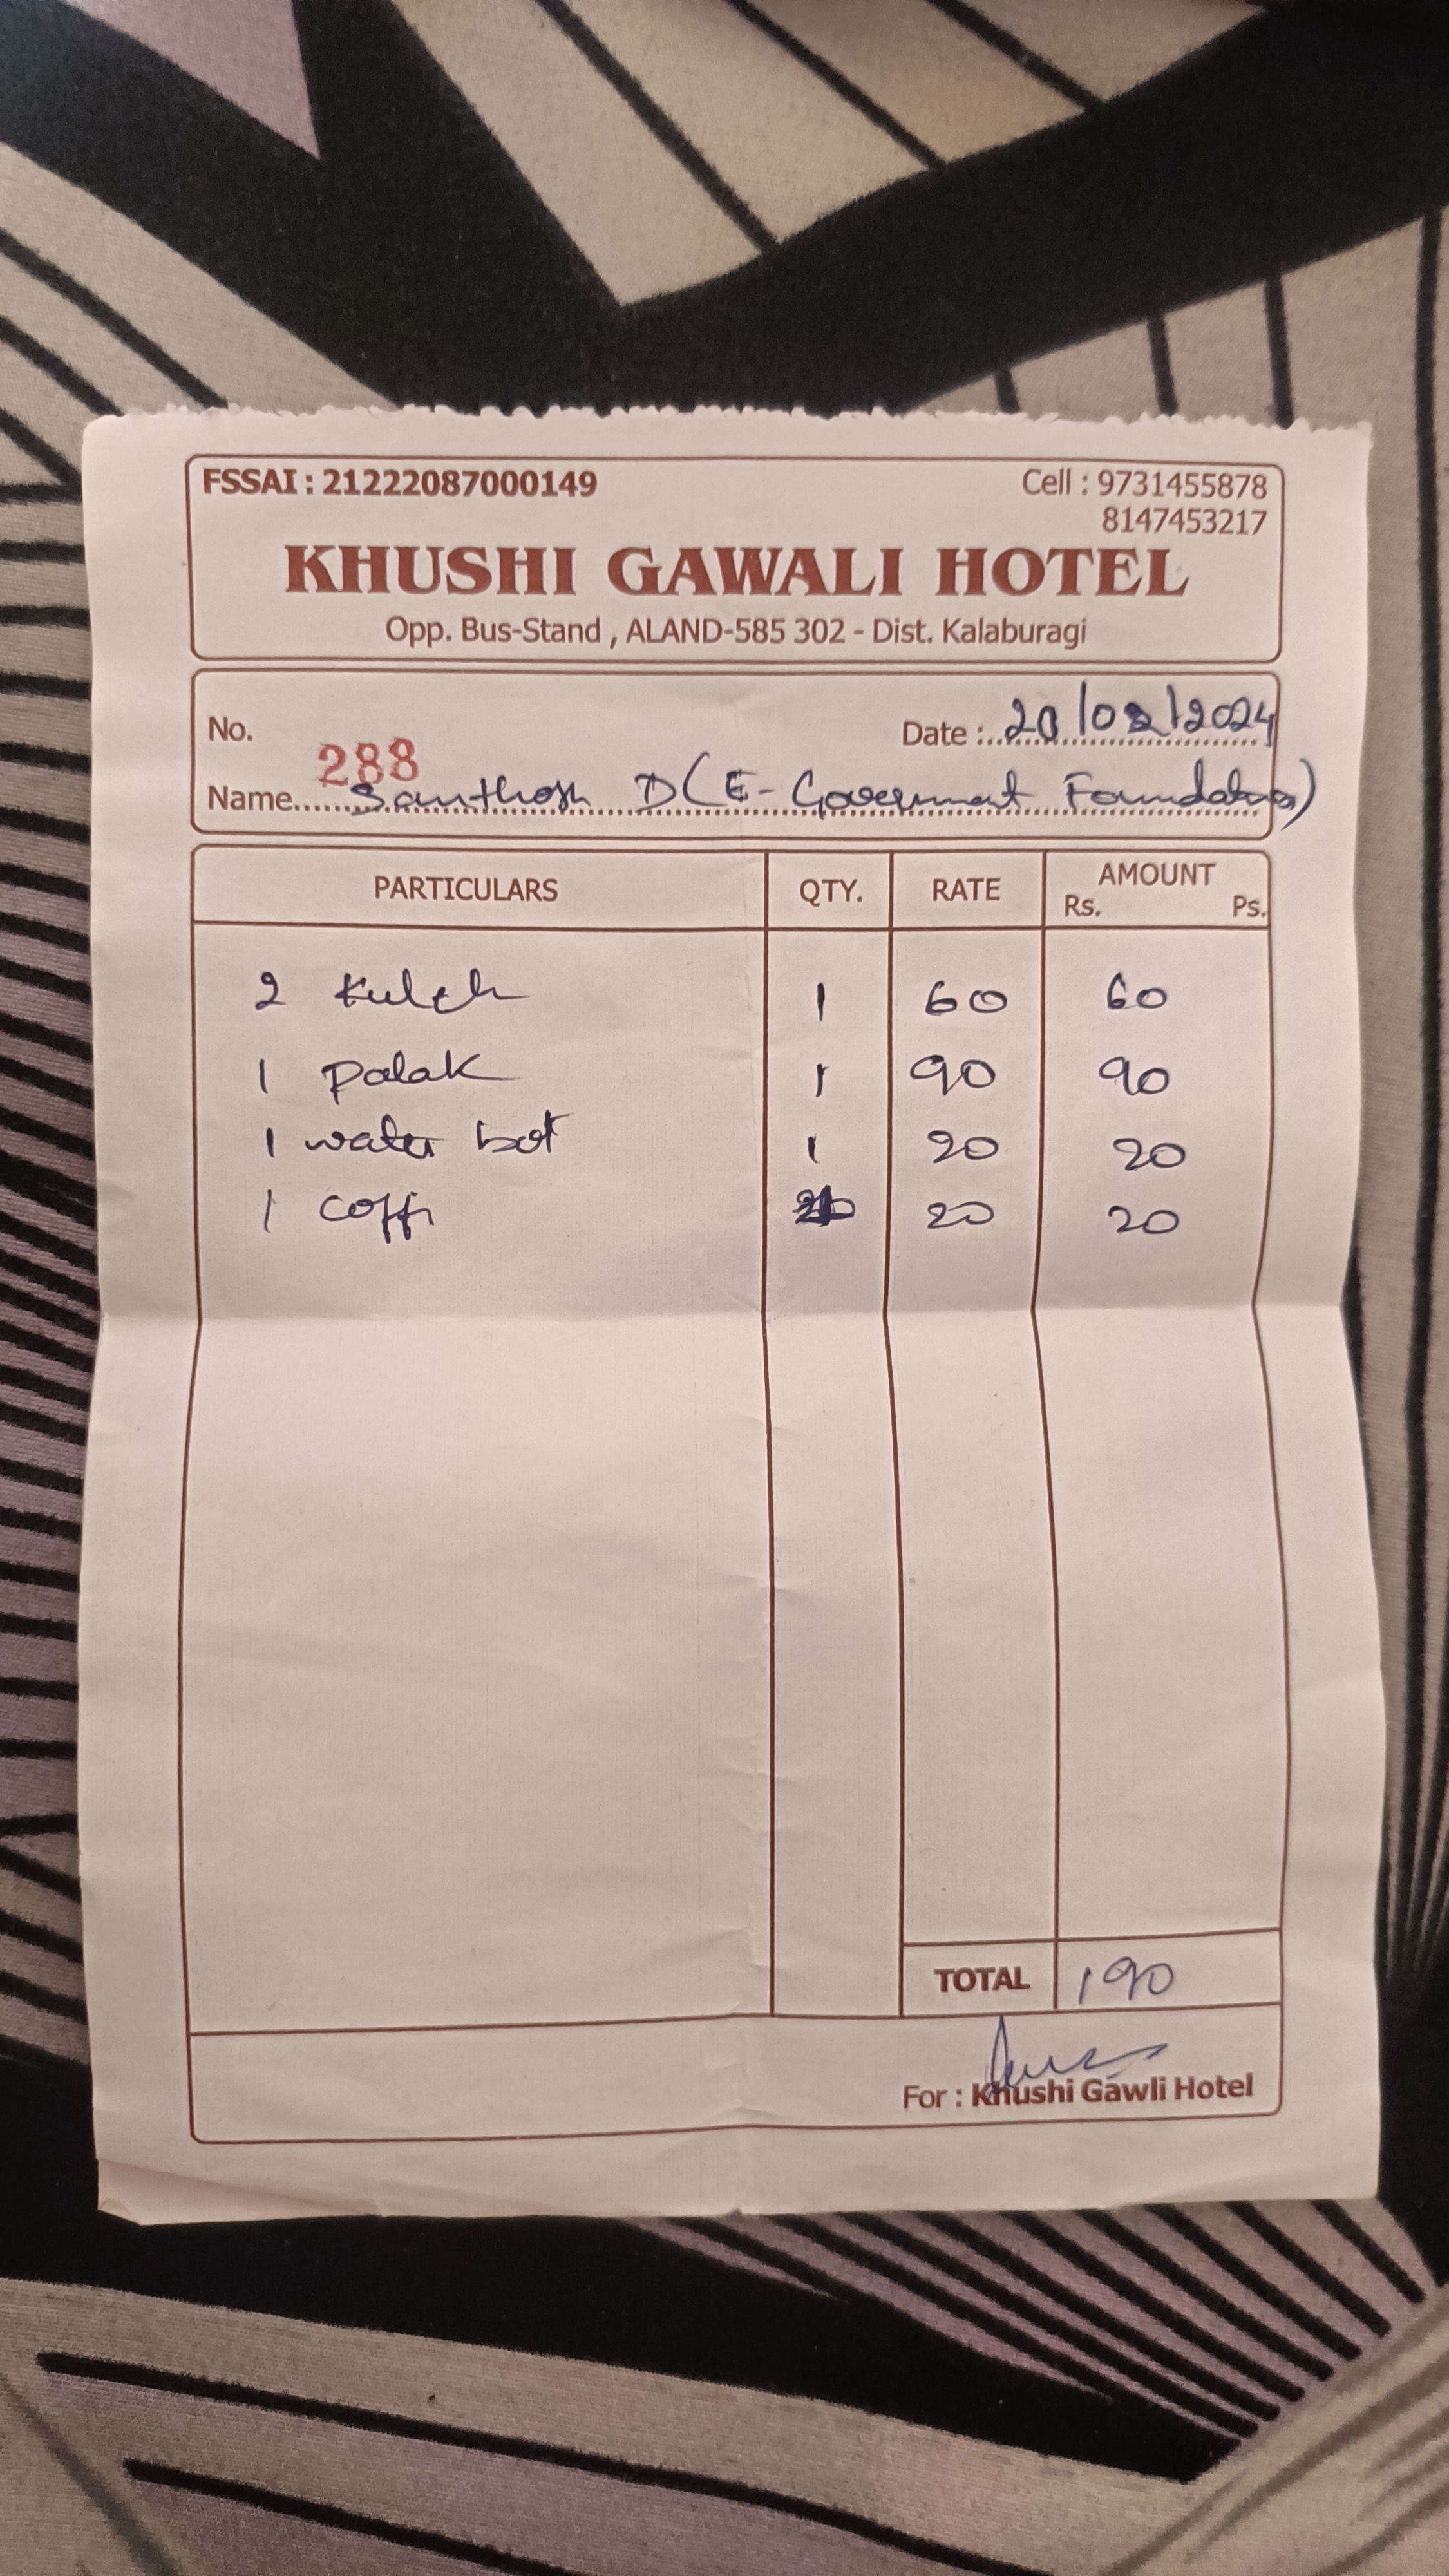 FSSAI : 21222087000149 Cell : 9731455878
8147453217
KHUSHI GAWALI HOTEL
Opp. Bus-Stand , ALAND-585 302 - Dist. Kalaburagi
No. 288 Date : 20/02/2024
Name Santhosh D (E-Government Foundation)
PARTICULARS QTY. RATE AMOUNT
Rs. Ps.
2 Kulch 1 60 60
1 Palak 1 90 90
1 water bot 1 20 20
1 coffi 20 20
TOTAL 190
For : Khushi Gawli Hotel